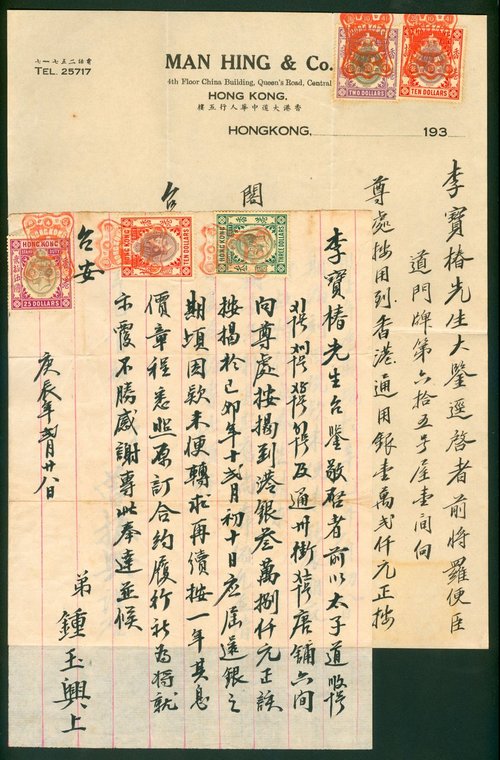 電話二五七一七
TEL. 25717
MAN HING & Co.
4th Floor China Building, Queen's Road, Central
HONG KONG.
香港大道中華人行五樓
HONGKONG, 193
HONG KONG
TWO DOLLARS
HONG KONG
TEN DOLLARS
李寶椿先生大鑒逕啓者前將羅便臣
道門牌第六拾五号屋壹間向
尊處按用到香港通用銀壹萬弍仟元正按
閤
台
HONG KONG
STAMP DUTY
25 DOLLARS
TEN DOLLARS
THREE DOLLARS
李寶椿先生台鑒敬啓者前以太子道
及通州街唐舖六間
向尊處按揭到港銀叁萬捌仟元正該
按揭於己卯年十弍月初十日应屆還銀之
期頃因欵未便轉求再續按一年其息
價章程悉照原訂合約履行祈為將就
示覆不勝感謝專此奉達並候
台安
弟鍾玉興上
庚辰年弍月廿八日